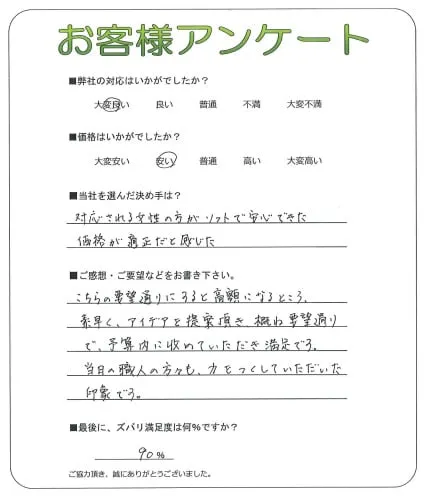 お客様アンケート
■弊社の対応はいかがでしたか?
大変良い 良い 普通 不満 大変不満
■価格はいかがでしたか?
大変安い 安い 普通 高い 大変高い
■当社を選んだ決め手は?
対応される女性の方がソフトで安心できた
価格が適正だと感じた
■ご感想・ご要望などをお書き下さい。
こちらの要望通りにすると高額になるところ、
素早く、アイデアを提案頂き、概ね要望通り
で、予算内に収めていただき満足です。
当日の職人の方々も、力をつくしていただいた
印象です。
■最後に、ズバリ満足度は何%ですか?
90%
ご協力頂き、誠にありがとうございました。